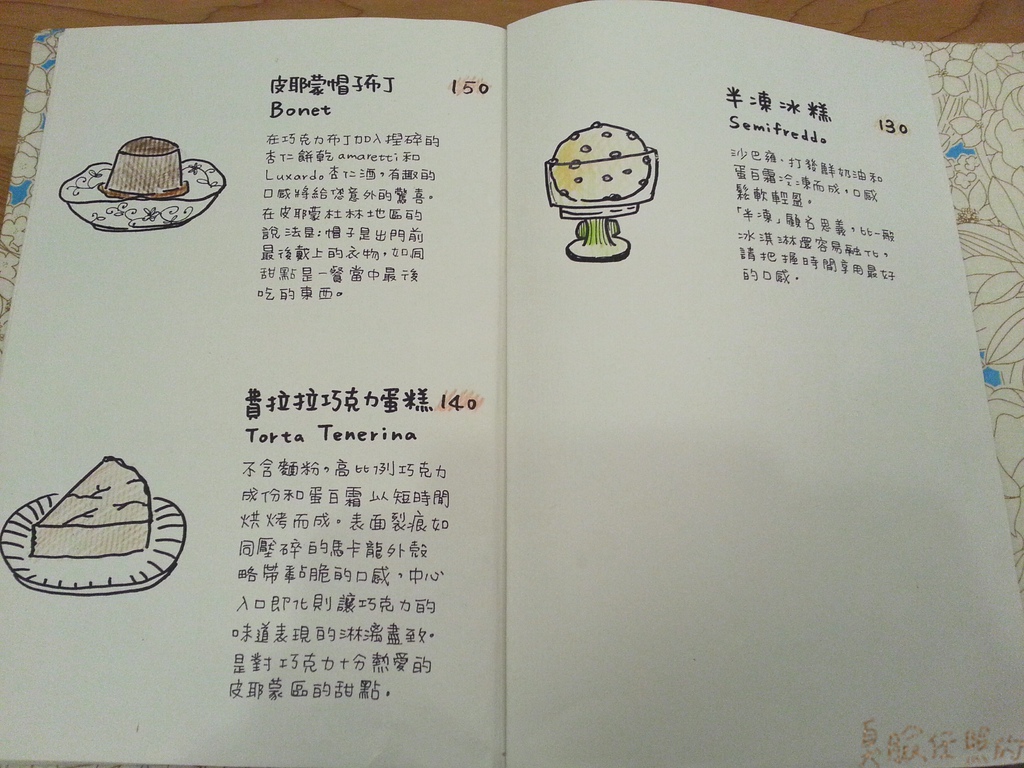 皮耶蒙帽子布丁 150
Bonet
在巧克力布丁加入捏碎的
杏仁餅乾 amaretti 和
Luxardo杏仁酒,有趣的
口感將給您意外的驚喜。
在皮耶蒙杜林地區的
說法是:帽子是出門前
最後戴上的衣物,如同
甜點是一餐當中最後
吃的東西。
費拉拉巧克力蛋糕 140
Torta Tenerina
不含麵粉,高比例巧克力
成份和蛋白霜以短時間
烘烤而成。表面裂痕如
同壓碎的馬卡龍外殼
略帶黏脆的口感,中心
入口即化則讓巧克力的
味道表現的淋漓盡致。
是對巧克力十分熱愛的
皮耶蒙區的甜點。
半凍冰糕 130
Semifreddo
沙巴雍、打發鮮奶油和
蛋白霜冷凍而成,口感
鬆軟輕盈。
「半凍」顧名思義,比一般
冰淇淋還容易融化,
請把握時間享用最好
的口感。